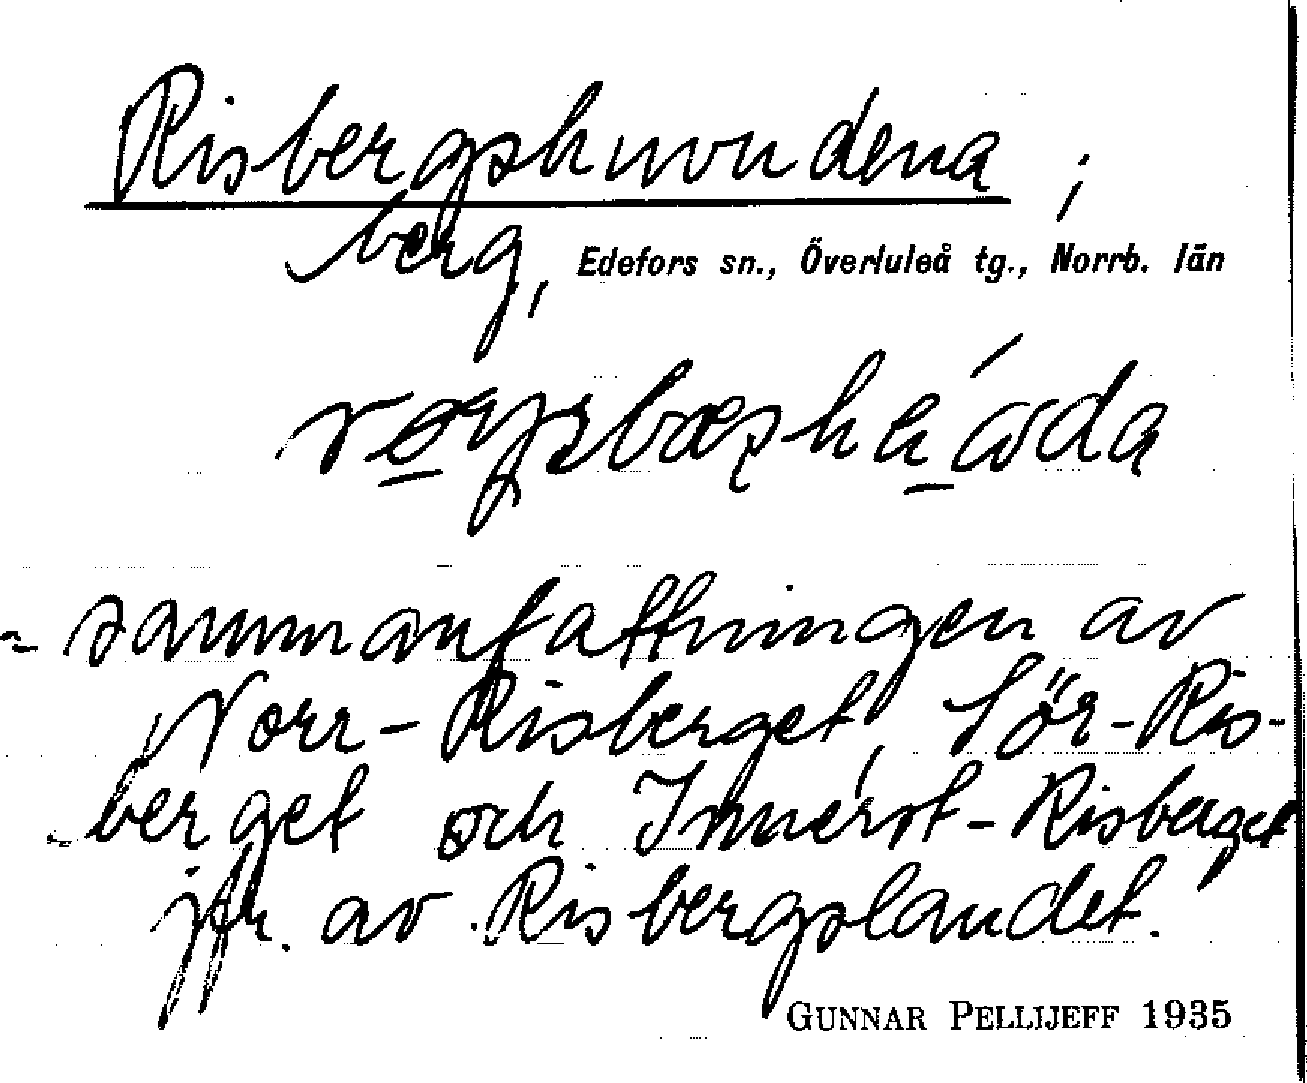 Risbergshuvudena ;
berg, Edefors sn., Överluleå tg., Norrb. län
sammanfattningen av
Norr-Risberget, Sör-Ris-
berget och Innerst-Risberget
jfr. av Risbergslandet.
GUNNAR PELLIJEFF 1935